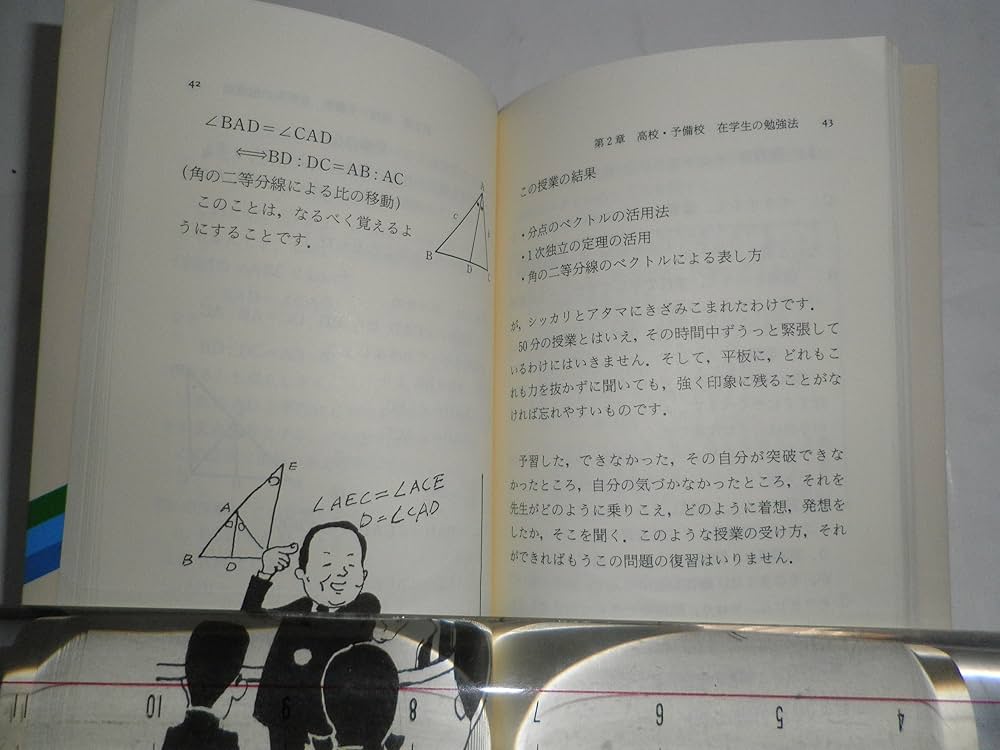 42
∠BAD=∠CAD
⟺BD:DC=AB:AC
(角の二等分線による比の移動)
このことは,なるべく覚えるよ
うにすることです.
A
C
B
D
C
E
A
B
D
∠AEC=∠ACE
D=∠CAD
第2章 高校・予備校 在学生の勉強法 43
この授業の結果
・分点のベクトルの活用法
・1次独立の定理の活用
・角の二等分線のベクトルによる表し方
が,シッカリとアタマにきざみこまれたわけです.
50分の授業とはいえ,その時間中ずうっと緊張して
いるわけにはいきません.そして,平板に,どれもこ
れも力を抜かずに聞いても,強く印象に残ることがな
ければ忘れやすいものです.
予習した,できなかった,その自分が突破できな
かったところ,自分の気づかなかったところ,それを
先生がどのように乗りこえ,どのように着想,発想を
したか,そこを聞く.このような授業の受け方,それ
ができればもうこの問題の復習はいりません.
11 10 9 8 7 6 5 4